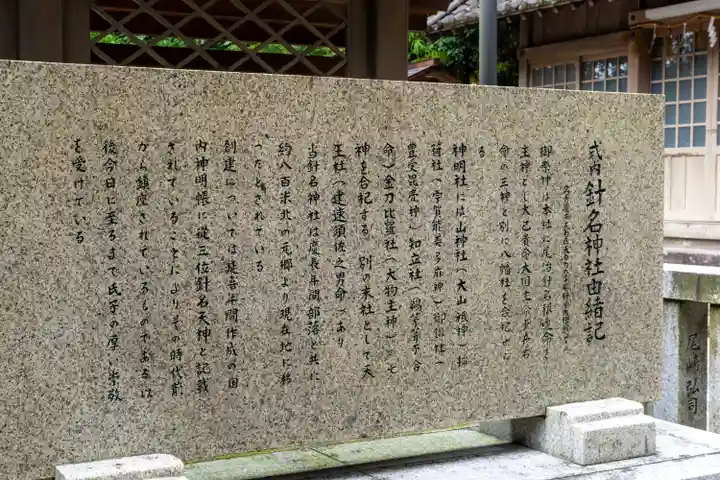 式内針名神社由緒記
御祭神は本社に尾治針名根連命を
主神とし大己貴命大国主
命の三神と別に八幡社を合祀せら
る
神明社には山神社(大山祇神)稲
荷社(宇賀能美多麻神)御鍬社(
豊受毘売神)知立社(
命)金刀比羅社(大物主神)の七
神を合祀する 別の末社として天
王社(建速須佐之男命)があり
当針名神社は慶長年間部落と共に
約八百米北の元郷より現在地に移
ったとされている
創建については延喜年間作成の国
内神明帳に従三位針名天神と記載
されていることによりその時代前
から鎮座されているものであるが
後今日に至るまで氏子の厚い崇敬
を受けている
尾崎弘司